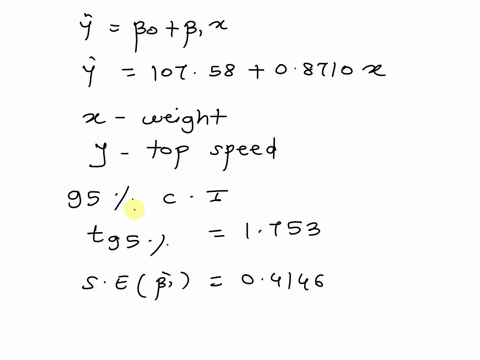 Ŷ = β0 + β1 x
Ŷ = 107.58 + 0.8710 x
x - weight
y - top speed
95 % C.I
t95% = 1.753
S.E(β̂1) = 0.4146